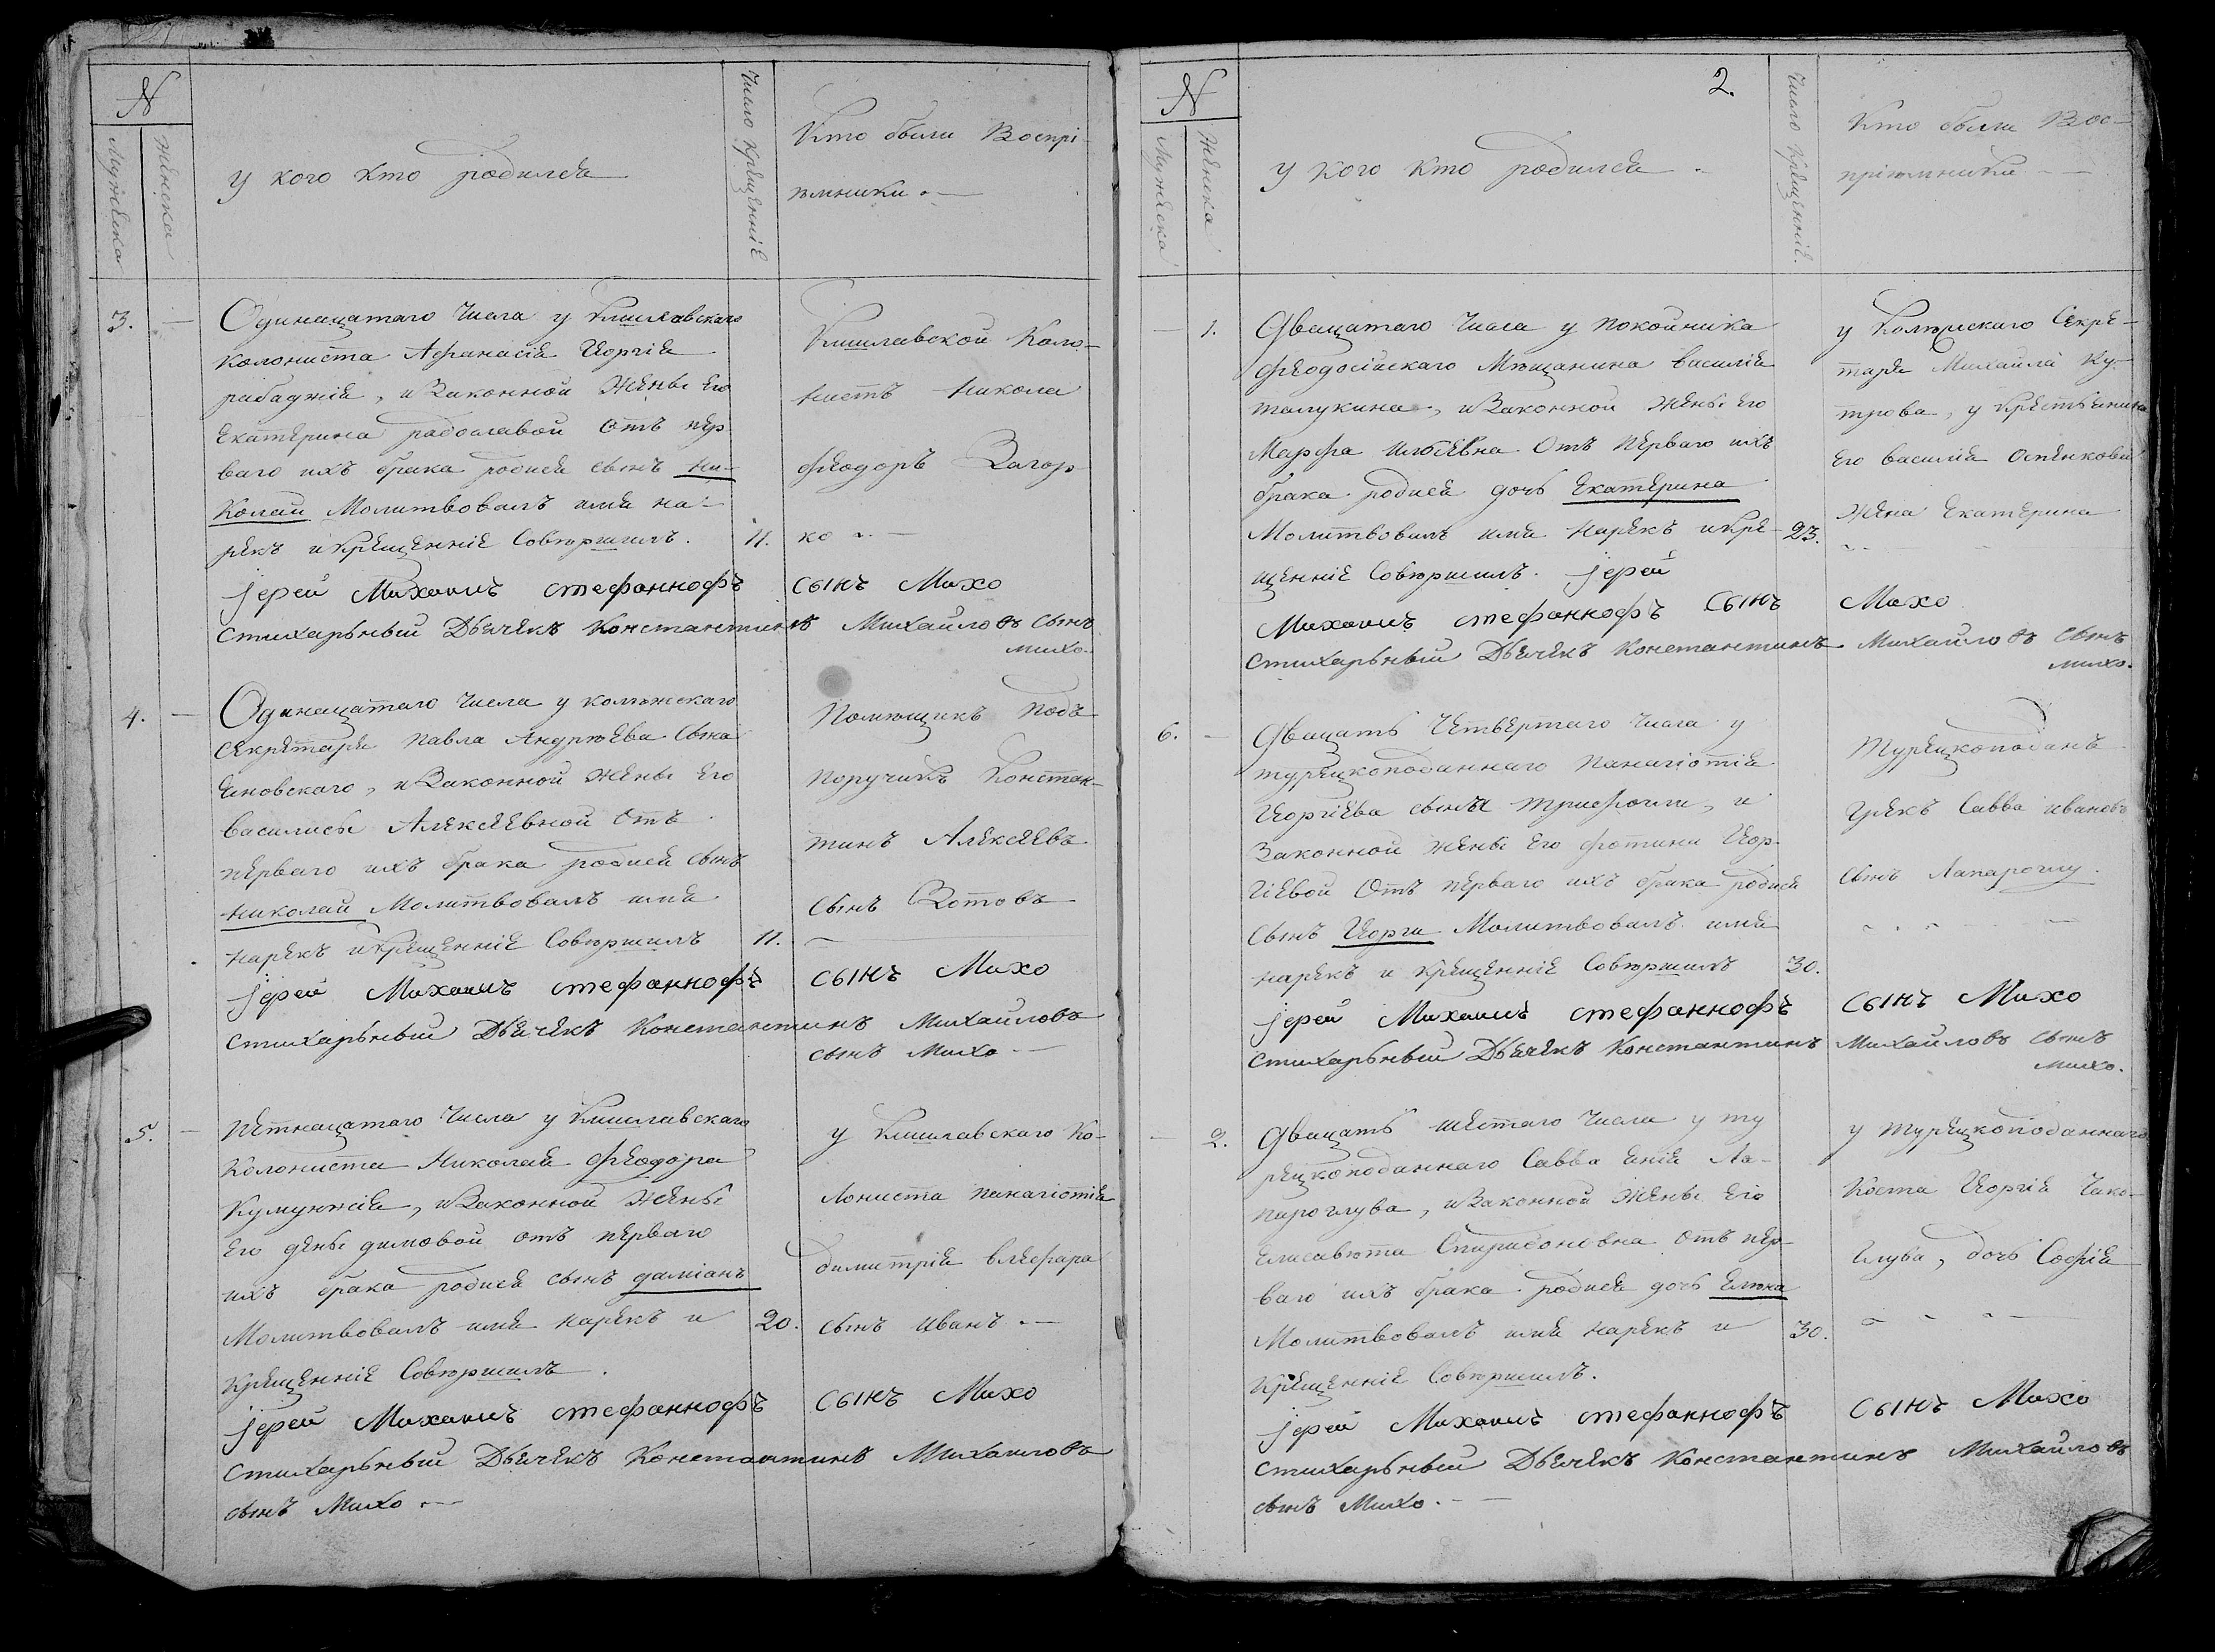 N
Мужеска
Женска
У кого кто родился
Число крещенніе
Кто были Воспрі-
емники.
3.
Одинацатаго Числа у Кишлавскаго
колониста Афанасія Георгія
рабаджія, и Законной Жены Его
Екатерина радославой Отъ пер
ваго ихъ брака родися сынъ Ни-
колай Молитвовалъ имя на-
рекъ и Крещенніе Совершилъ.
11.
Кишлавской Коло-
нистъ Никола
Феодоръ Загор
ко
іерей Михаилъ стефаннофъ сынъ Михо
стихарьный Дьячекъ Константинъ Михайловъ сынъ
михо.
4.
Одинацатаго Числа у колежскаго
секретаря Павла Андреева сына
Яновскаго, и Законной Жены Его
Василисы Алексеевной Отъ
перваго ихъ брака родися сынъ
Николай Молитвовалъ имя
нарекъ и Крещенніе Совершилъ
11.
Помещикъ Подъ
поручикъ Констан-
тинъ Алексеевъ
сынъ Зотовъ
іерей Михаилъ стефаннофъ сынъ Михо
стихарьный Дьячекъ Константинъ Михайловъ
сынъ Михо
5.
Петнацатаго Числа у Кишлавскаго
Колониста Николая Феодора
Кумунжія, и Законной Жены
Его дены димовой отъ перваго
ихъ брака родися сынъ даміанъ
Молитвовалъ имя нарекъ и
Крещенніе Совершилъ.
20.
у Кишлавскаго Ко-
лониста панагіотія
димитрія влефара
сынъ Иванъ
іерей Михаилъ стефаннофъ сынъ Михо
стихарьный Дьячекъ Константинъ Михайловъ
сынъ Михо
2.
N
Мужеска
Женска
У кого кто родился
Число крещенніе.
Кто были Вос-
пріемники
1.
Двацатаго Числа у покойника
феодосійскаго Мещанина Василія
талукина, и Законной Жены Его
Марфа Отъ Перваго ихъ
брака родися дочь Екатерина
Молитвовалъ имя нарекъ и Кре-
щенніе Совершилъ. іерей
23.
у Секре-
таря Михайла Ку-
трова, у Крестьянина
Его Василія
жена Екатерина
Михаилъ стефаннофъ сынъ Михо
стихарьный Дьячекъ Константинъ Михайловъ сынъ
михо.
6.
Двацать Четвертаго Числа у
турецкоподаннаго Панагіотія
Георгіева сына трифоглы, и
Законной жены Его фотини Геор-
гіевой Отъ перваго ихъ брака родися
сынъ Георги Молитвовалъ имя
нарекъ и Крещенніе Совершилъ
30.
Турецкоподанъ
Грекъ Савва Ивановъ
сынъ Лапароглу.
іерей Михаилъ стефаннофъ сынъ Михо
стихарьный Дьячекъ Константинъ Михайловъ сынъ
михо.
2.
Двацать шестаго Числа у ту
рецкоподаннаго Савва янія Ла-
пароглува, и Законной Жены Его
Елисавета Спиридоновна отъ пер-
ваго ихъ брака родися дочь Елена
Молитвовалъ имя нарекъ и
Крещенніе Совершилъ.
30.
у турецкоподаннаго
Коста Георгія Чако-
глува, дочь Софія
іерей Михаилъ стефаннофъ сынъ Михо
стихарьный Дьячекъ Константинъ Михайловъ
сынъ Михо.